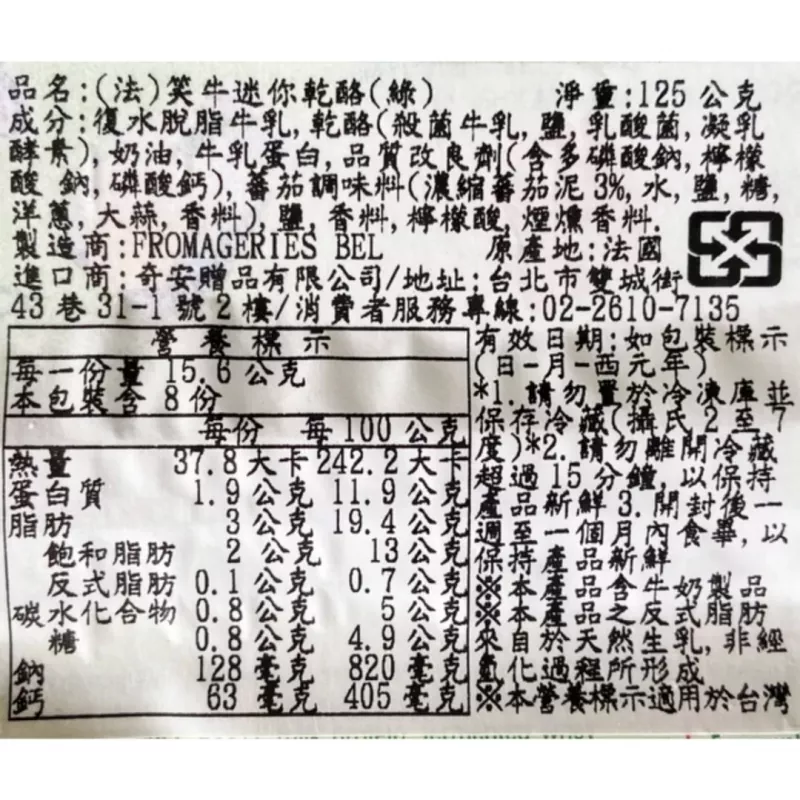 品名:(法)笑牛迷你乾酪(綠) 淨重:125 公克
成分:復水脫脂牛乳, 乾酪(殺菌牛乳, 鹽, 乳酸菌, 凝乳
酵素), 奶油, 牛乳蛋白, 品質改良劑(含多磷酸鈉, 檸檬
酸 鈉, 磷酸鈣), 蕃茄調味料(濃縮蕃茄泥 3%, 水, 鹽, 糖,
洋蔥, 大蒜, 香料), 鹽, 香料, 檸檬酸, 煙燻香料.
製造商:FROMAGERIES BEL 原產地:法國
進口商:奇安贈品有限公司/地址:台北市雙城街
43 巷 31-1 號 2 樓/消費者服務專線:02-2610-7135
營養標示
每一份量 15.6 公克
本包裝含 8 份
每份 每 100 公克
熱量 37.8 大卡 242.2 大卡
蛋白質 1.9 公克 11.9 公克
脂肪 3 公克 19.4 公克
飽和脂肪 2 公克 13 公克
反式脂肪 0.1 公克 0.7 公克
碳水化合物 0.8 公克 5 公克
糖 0.8 公克 4.9 公克
鈉 128 毫克 820 毫克
鈣 63 毫克 405 毫克
有效日期:如包裝標示
(日-月-西元年)
*1.請勿置於冷凍庫並
保存冷藏(攝氏 2 至 7
度)*2.請勿離開冷藏
超過 15 分鐘,以保持
產品新鮮 3.開封後一
週至一個月內食畢,以
保持產品新鮮
※本產品含牛奶製品
※本產品之反式脂肪
來自於天然生乳,非經
氫化過程所形成
※本營養標示適用於台灣